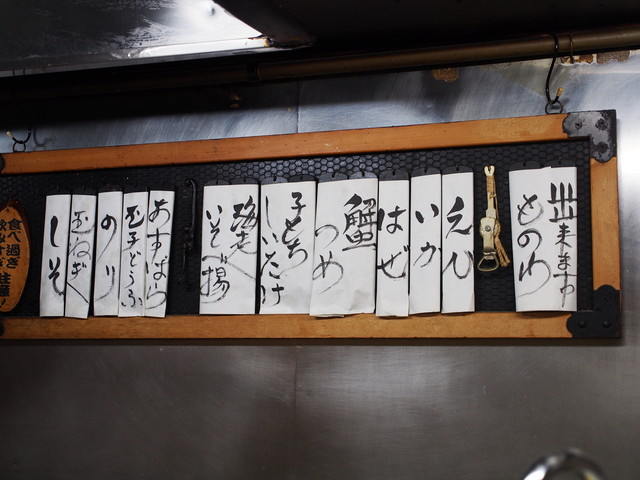 出来ます
ものわ
えび
いか
はぜ
蟹
つめ
子どもち
しいたけ
海老
いそべ揚
あすぱら
玉子どうふ
のり
玉ねぎ
しそ
食べ過ぎ
注意!